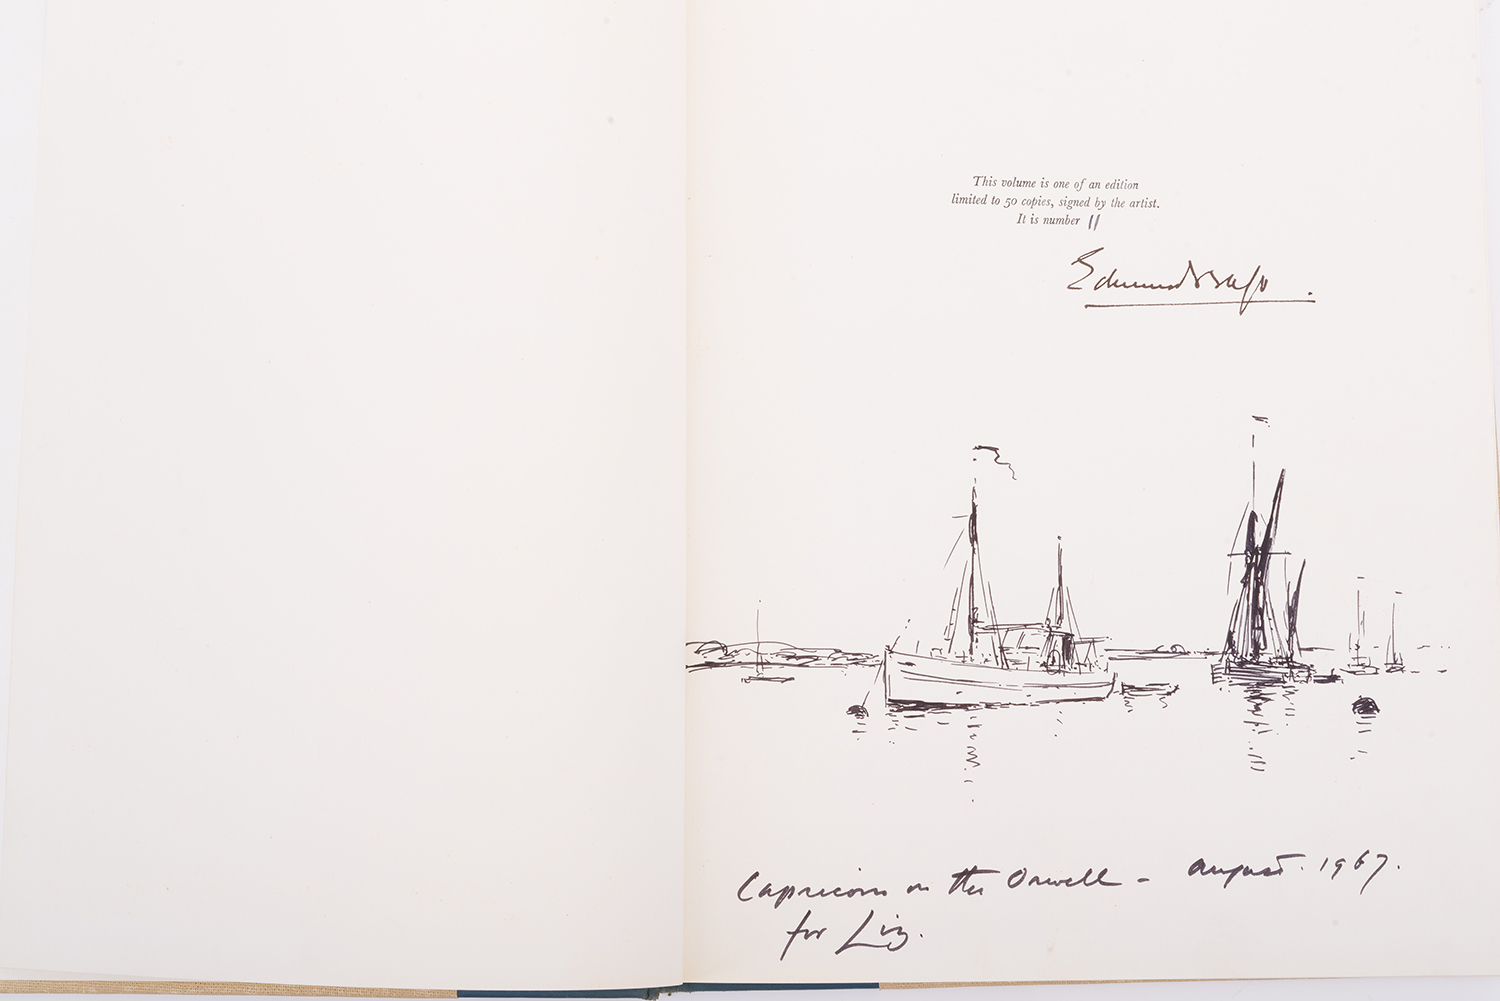 This volume is one of an edition
limited to 50 copies, signed by the artist.
It is number 11
Edmund Seago
Capricorn on the Orwell – August. 1967.
for Liz.